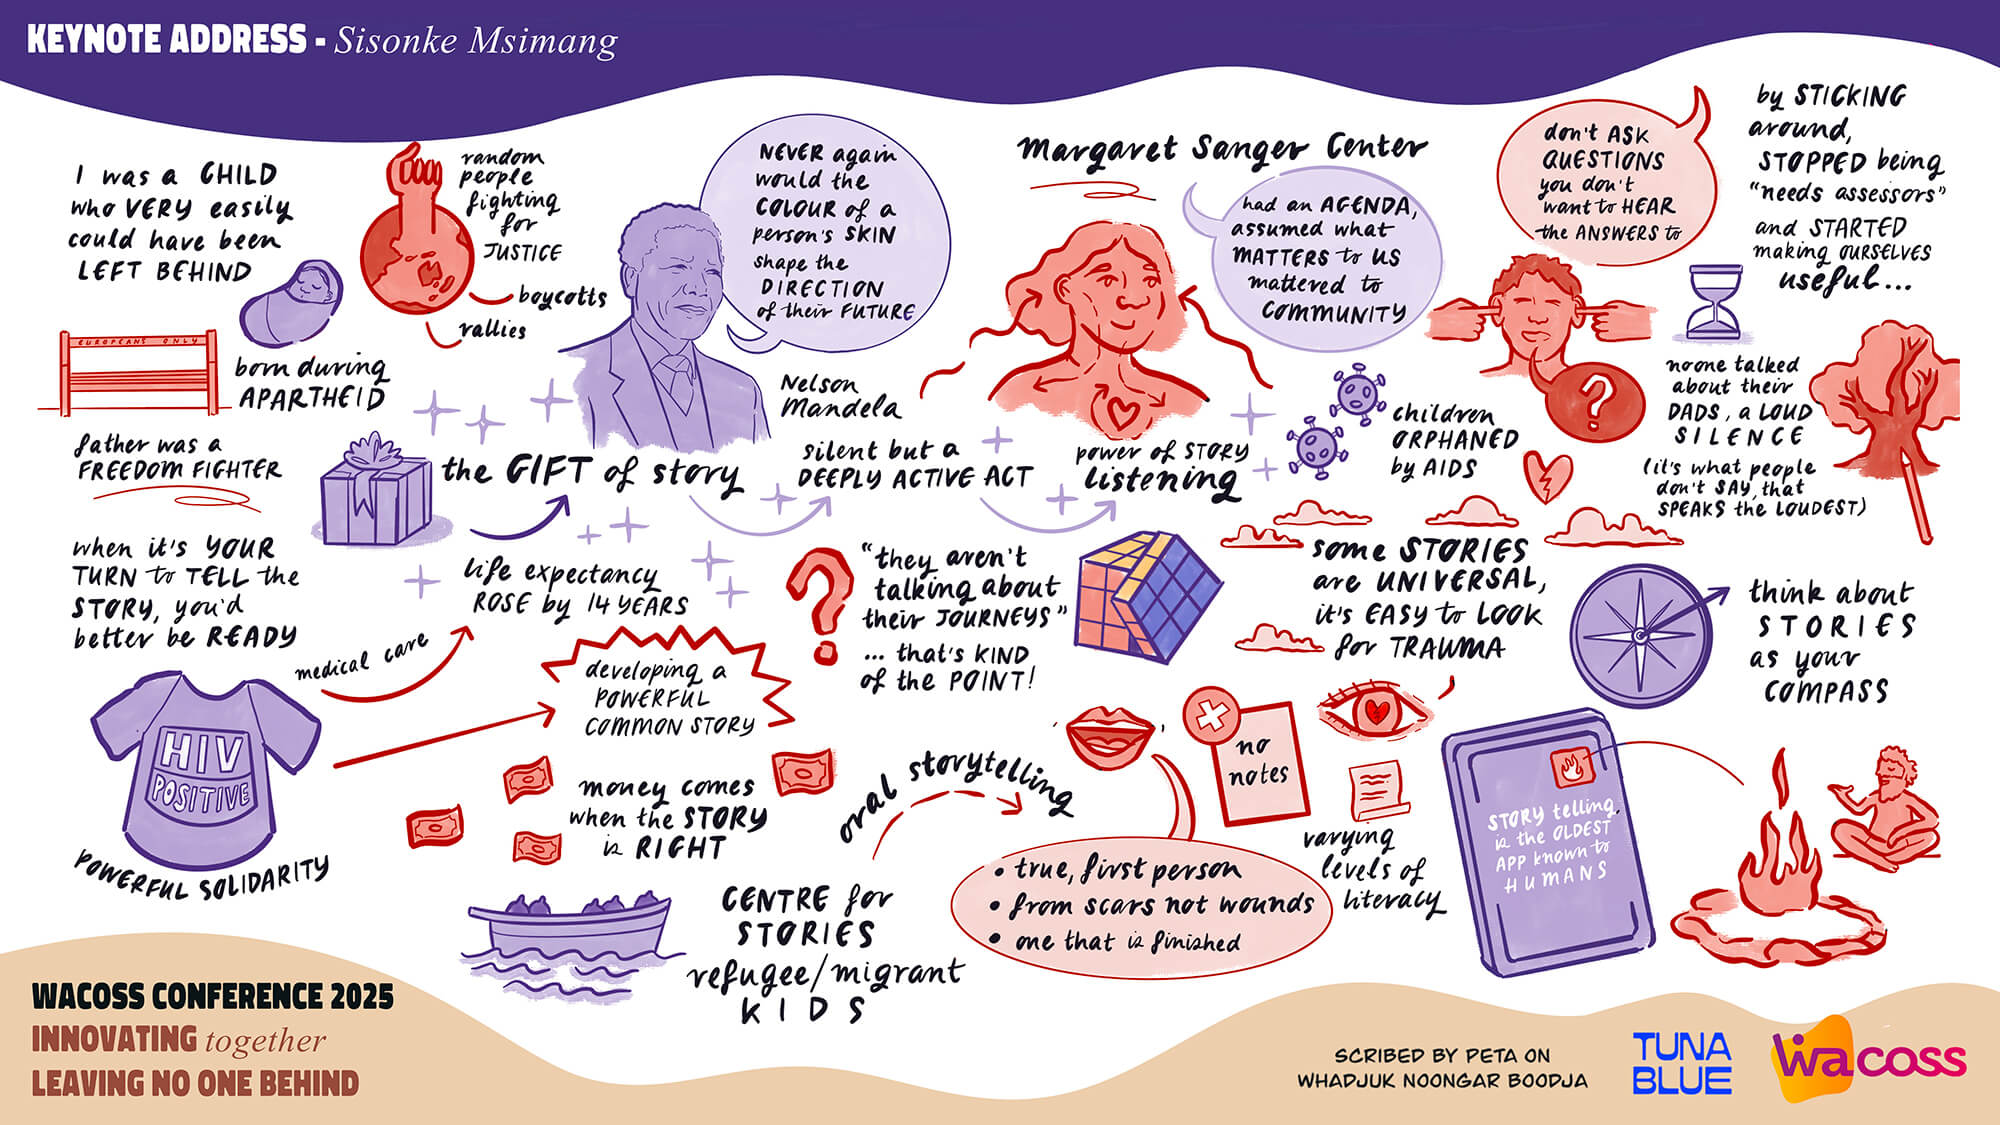 KEYNOTE ADDRESS - Sisonke Msimang
I was a CHILD
who VERY easily
could have been
LEFT BEHIND
random
people
fighting
for
JUSTICE
boycotts
rallies
EUROPEANS ONLY
born during
APARTHEID
father was a
FREEDOM FIGHTER
NEVER again
would the
COLOUR of a
person's SKIN
shape the
DIRECTION
of their FUTURE
Nelson
Mandela
the GIFT of story
silent but a
DEEPLY ACTIVE ACT
power of STORY
listening
Margaret Sanger Center
had an AGENDA,
assumed what
MATTERS to US
mattered to
COMMUNITY
don't ASK
QUESTIONS
you don't
want to HEAR
the ANSWERS to
?
by STICKING
around,
STOPPED being
"needs assessors"
and STARTED
making OURSELVES
useful...
children
ORPHANED
by AIDS
noone talked
about their
DADS, a LOUD
SILENCE
(it's what people
don't SAY, that
SPEAKS the LOUDEST)
when it's YOUR
TURN to TELL the
STORY, you'd
better be READY
medical care
life expectancy
ROSE by 14 YEARS
HIV
POSITIVE
POWERFUL SOLIDARITY
developing a
POWERFUL
COMMON STORY
money comes
when the STORY
is RIGHT
?
"they aren't
talking about
their JOURNEYS"
... that's KIND
of the POINT!
some STORIES
are UNIVERSAL,
it's EASY to LOOK
for TRAUMA
think about
STORIES
as your
COMPASS
oral storytelling
no
notes
• true, first person
• from scars not wounds
• one that is finished
varying
levels of
literacy
STORY telling
is the OLDEST
APP known to
HUMANS
CENTRE for
STORIES
refugee/migrant
KIDS
WACOSS CONFERENCE 2025
INNOVATING together
LEAVING NO ONE BEHIND
SCRIBED BY PETA ON
WHADJUK NOONGAR BOODJA
TUNA
BLUE
wacoss